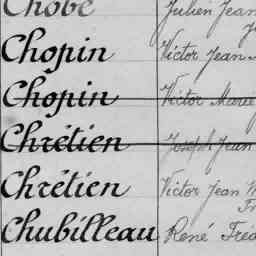 Chobé Julien Jean
Chopin Victor Jean
Chopin Victor Marie
Chrétien Joseph Jean
Chrétien Victor Jean
Chubilleau René